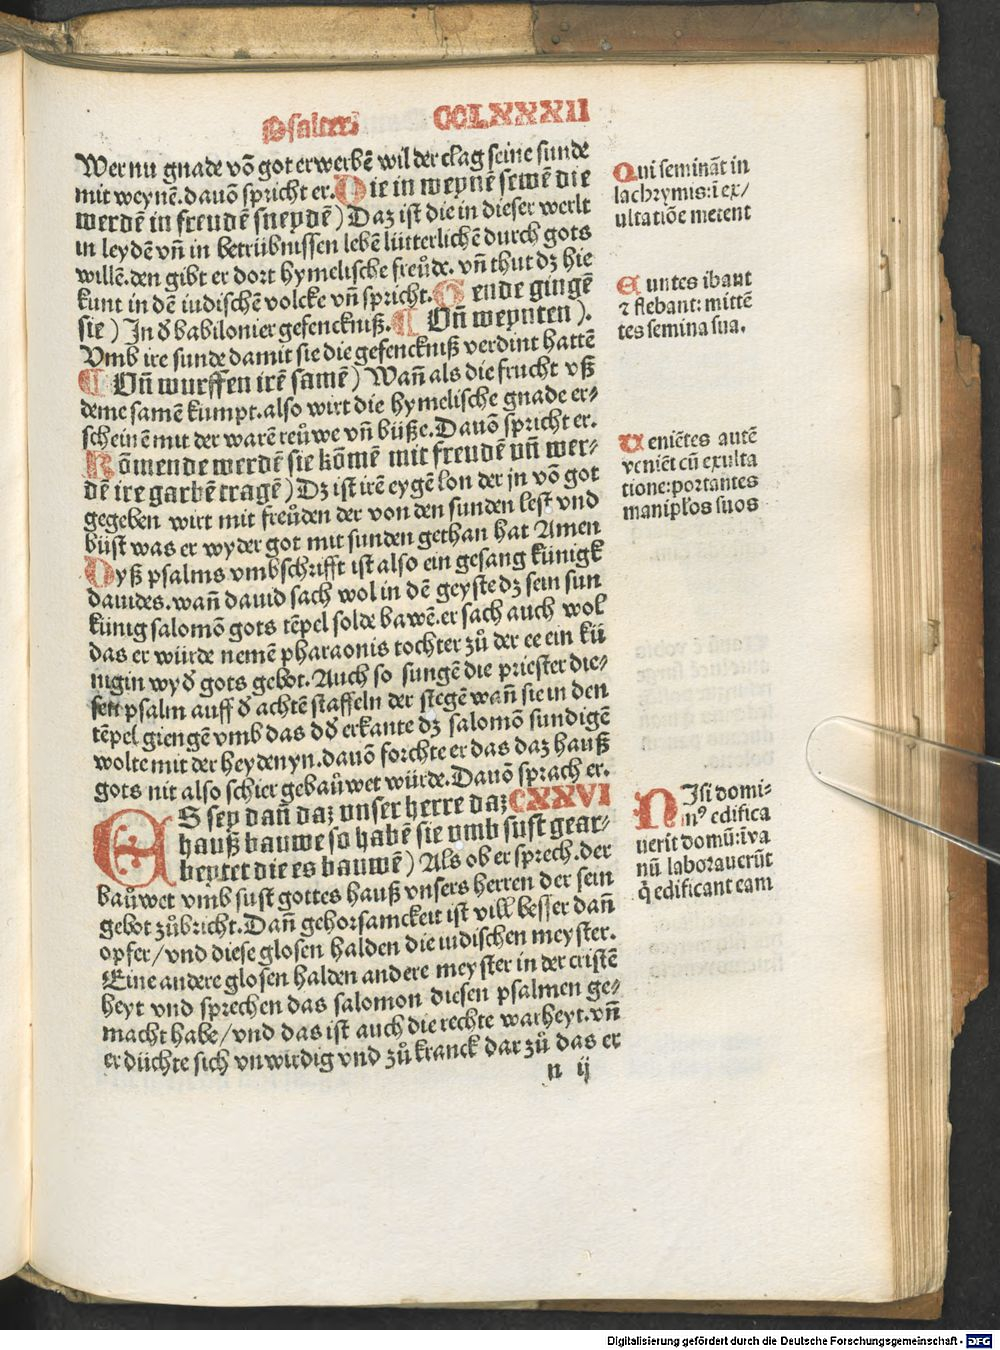 Psalter CCLXXXII
Wer nu gnade võ got erwerbẽ wil der clag seine sunde
mit weynẽ. dauõ spricht er. Die in weynẽ sewẽ die
werdẽ in freudẽ sneydẽ) Daz ist die in dieser werlt
in leydẽ vñ in betrübnissen lebẽ lütterlichẽ durch gots
willẽ. den gibt er dort hymelische freůde. vñ thut dz hie
kunt in dẽ iudischẽ volcke vñ spricht. Gende gingẽ
sie) In d̃ babilonier gefenckniß. ¶ Vñ weynten).
Vmb ire sunde damit sie die gefenckniß verdint hattẽ
¶ Vñ wurffen irẽ samẽ) Wañ als die frucht vß
deme samẽ kumpt. also wirt die hymelische gnade er⸗
scheinẽ mit der warẽ reůwe vñ büße. Dauõ spricht er.
Kõmende werdẽ sie kõmẽ mit freudẽ vñ wer⸗
dẽ ire garbẽ tragẽ) Dz ist irẽ eygẽ lon der jn võ got
gegeben wirt mit freůden der von den sunden lest vnd
büst was er wyder got mit sunden gethan hat Amen
Dyß psalms vmbschrifft ist also ein gesang künigk
dauides. wañ dauid sach wol in dẽ geyste dz sein sun
künig salomõ gots tẽpel solde bawẽ. er sach auch wol
das er würde nemẽ pharaonis tochter zů der ee ein kü
nigin wyd̃ gots gebot. Auch so sungẽ die priester die⸗
sen psalm auff d̃ achtẽ staffeln der stegẽ wañ sie in den
tẽpel giengẽ vmb das dd̃ erkante dz salomõ sundigẽ
wolte mit der heydenyn. dauõ forchte er das daz hauß
gots nit also schier gebaůwet würde. Dauõ sprach er.
ES sey dañ daz vnser herre daz CXXVI
hauß bauwe so habẽ sie vmb sust gear⸗
beytet die es bauwẽ) Als ob er sprech. der
baůwet vmb sust gottes hauß vnsers herren der sein
gebot zůbricht. Dañ gehorsamckeit ist vill besser dañ
opfer/ vnd diese glosen halden die iudischen meyster.
Eine andere glosen halden andere meyster in der cristẽ
heyt vnd sprechen das salomon diesen psalmen ge⸗
macht habe/ vnd das ist auch die rechte warheyt. vñ
er düchte sich vnwirdig vnd zů kranck dar zů das er
n ij
Qui seminãt in
lachrymis: ĩ ex/
ultatiõe metent
Euntes ibant
⁊ flebant: mittẽ
tes semina sua.
Veniẽtes autẽ
veniẽt cũ exulta
tione: portantes
manipłos suos
NIsi domi-
nꝰ edifica
uerit domũ: ĩ va
nũ laborauerũt
q̃ edificant eam
Digitalisierung gefördert durch die Deutsche Forschungsgemeinschaft - DFG